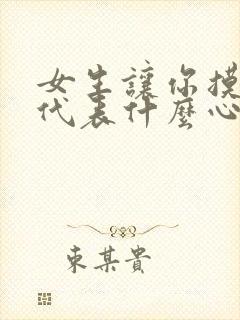 女生讓你摸
代表什麼心
東某貴